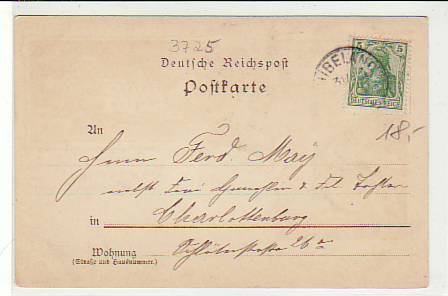 3725
Deutsche Reichspost
Postkarte
5 5
DEUTSCHES REICH
An
Herrn Ferd. May
nebst Frau Gemahlin & Frl. Tochter
in Charlottenburg
Wohnung
(Straße und Hausnummer.)
Schlüterstraße 26a
18,-